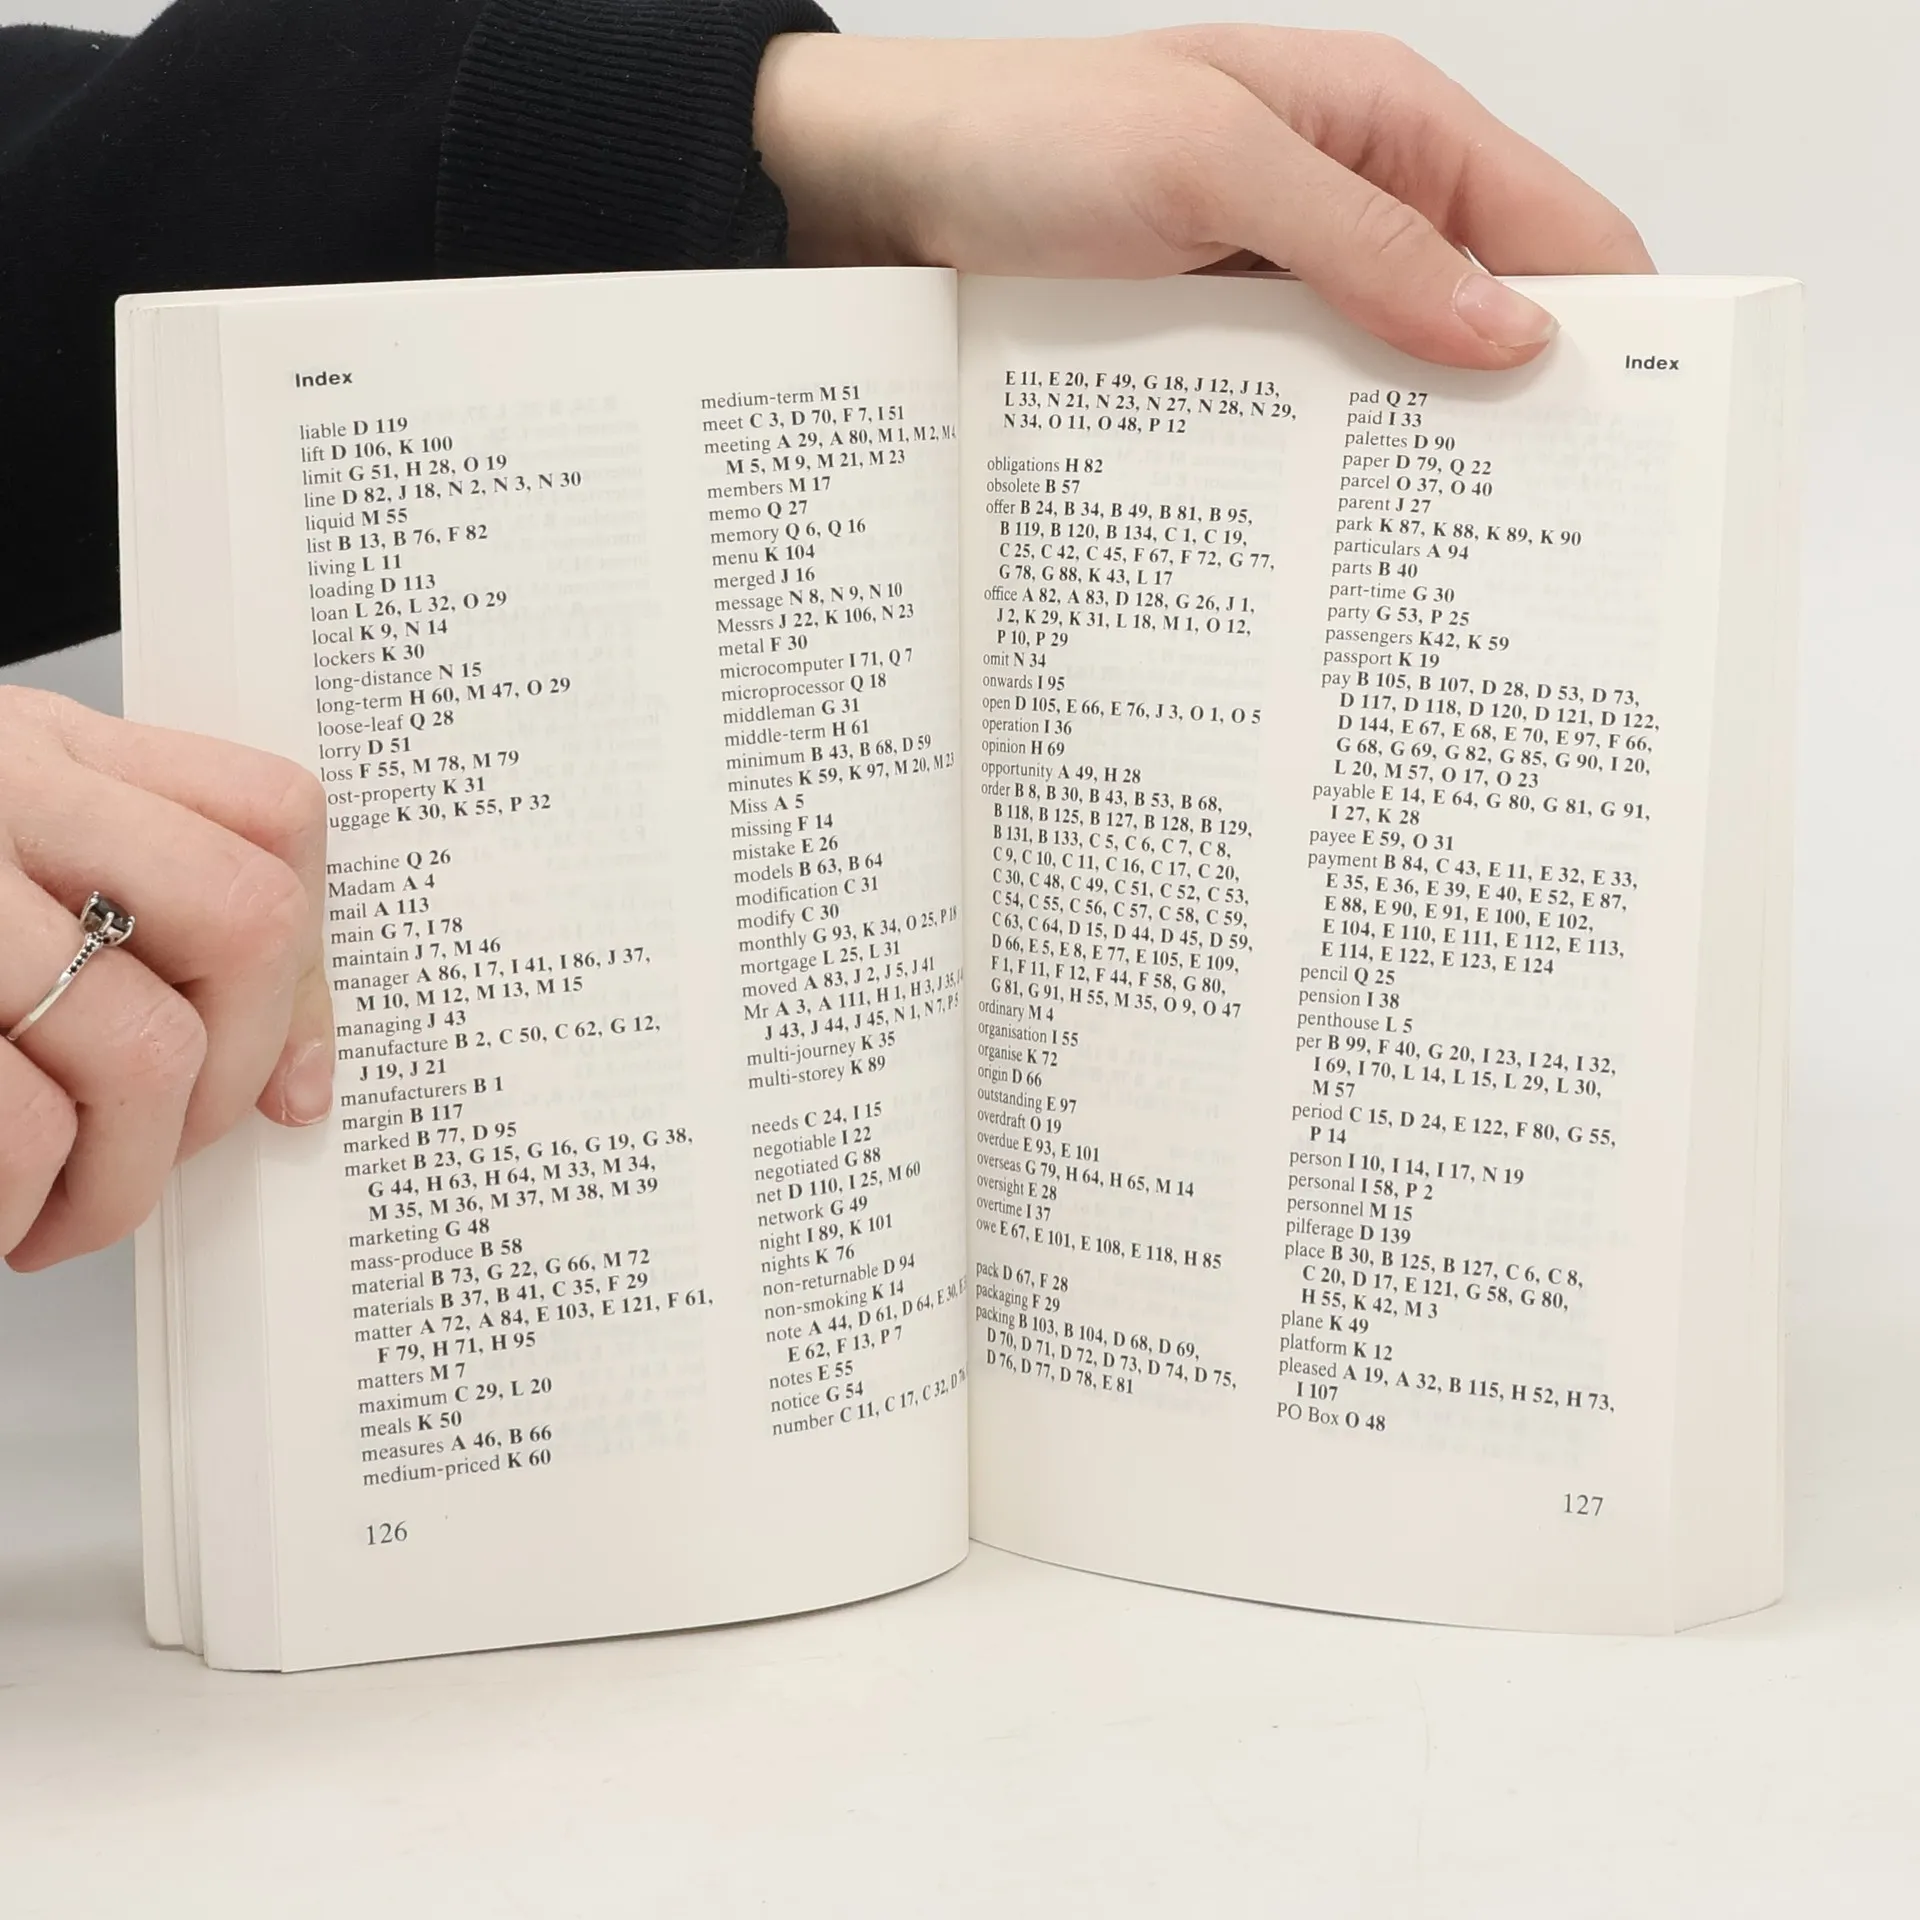 Index
liable D 119
lift D 106, K 100
limit G 51, H 28, O 19
line D 82, J 18, N 2, N 3, N 30
liquid M 55
list B 13, B 76, F 82
living L 11
loading D 113
loan L 26, L 32, O 29
local K 9, N 14
lockers K 30
long-distance N 15
long-term H 60, M 47, O 29
loose-leaf Q 28
lorry D 51
loss F 55, M 78, M 79
ost-property K 31
uggage K 30, K 55, P 32
machine Q 26
Madam A 4
mail A 113
main G 7, I 78
maintain J 7, M 46
manager A 86, I 7, I 41, I 86, J 37,
M 10, M 12, M 13, M 15
managing J 43
manufacture B 2, C 50, C 62, G 12,
J 19, J 21
manufacturers B 1
margin B 117
marked B 77, D 95
market B 23, G 15, G 16, G 19, G 38,
G 44, H 63, H 64, M 33, M 34,
M 35, M 36, M 37, M 38, M 39
marketing G 48
mass-produce B 58
material B 73, G 22, G 66, M 72
materials B 37, B 41, C 35, F 29
matter A 72, A 84, E 103, E 121, F 61,
F 79, H 71, H 95
matters M 7
maximum C 29, L 20
meals K 50
measures A 46, B 66
medium-priced K 60
126
medium-term M 51
meet C 3, D 70, F 7, I 51
meeting A 29, A 80, M 1, M 2, M 4
M 5, M 9, M 21, M 23
members M 17
memo Q 27
memory Q 6, Q 16
menu K 104
merged J 16
message N 8, N 9, N 10
Messrs J 22, K 106, N 23
metal F 30
microcomputer I 71, Q 7
microprocessor Q 18
middleman G 31
middle-term H 61
minimum B 43, B 68, D 59
minutes K 59, K 97, M 20, M 23
Miss A 5
missing F 14
mistake E 26
models B 63, B 64
modification C 31
modify C 30
monthly G 93, K 34, O 25, P 18
mortgage L 25, L 31
moved A 83, J 2, J 5, J 41
Mr A 3, A 111, H 1, H 3, J 35,
J 43, J 44, J 45, N 1, N 7, P 5
multi-journey K 35
multi-storey K 89
needs C 24, I 15
negotiable I 22
negotiated G 88
net D 110, I 25, M 60
network G 49
night I 89, K 101
nights K 76
non-returnable D 94
non-smoking K 14
note A 44, D 61, D 64, E 30,
E 62, F 13, P 7
notes E 55
notice G 54
number C 11, C 17, C 32,
Index
E 11, E 20, F 49, G 18, J 12, J 13,
L 33, N 21, N 23, N 27, N 28, N 29,
N 34, O 11, O 48, P 12
obligations H 82
obsolete B 57
offer B 24, B 34, B 49, B 81, B 95,
B 119, B 120, B 134, C 1, C 19,
C 25, C 42, C 45, F 67, F 72, G 77,
G 78, G 88, K 43, L 17
office A 82, A 83, D 128, G 26, J 1,
J 2, K 29, K 31, L 18, M 1, O 12,
P 10, P 29
omit N 34
onwards I 95
open D 105, E 66, E 76, J 3, O 1, O 5
operation I 36
opinion H 69
opportunity A 49, H 28
order B 8, B 30, B 43, B 53, B 68,
B 118, B 125, B 127, B 128, B 129,
B 131, B 133, C 5, C 6, C 7, C 8,
C 9, C 10, C 11, C 16, C 17, C 20,
C 30, C 48, C 49, C 51, C 52, C 53,
C 54, C 55, C 56, C 57, C 58, C 59,
C 63, C 64, D 15, D 44, D 45, D 59,
D 66, E 5, E 8, E 77, E 105, E 109,
F 1, F 11, F 12, F 44, F 58, G 80,
G 81, G 91, H 55, M 35, O 9, O 47
ordinary M 4
organisation I 55
organise K 72
origin D 66
outstanding E 97
overdraft O 19
overdue E 93, E 101
overseas G 79, H 64, H 65, M 14
oversight E 28
overtime I 37
owe E 67, E 101, E 108, E 118, H 85
pack D 67, F 28
packaging F 29
packing B 103, B 104, D 68, D 69,
D 70, D 71, D 72, D 73, D 74, D 75,
D 76, D 77, D 78, E 81
pad Q 27
paid I 33
palettes D 90
paper D 79, Q 22
parcel O 37, O 40
parent J 27
park K 87, K 88, K 89, K 90
particulars A 94
parts B 40
part-time G 30
party G 53, P 25
passengers K42, K 59
passport K 19
pay B 105, B 107, D 28, D 53, D 73,
D 117, D 118, D 120, D 121, D 122,
D 144, E 67, E 68, E 70, E 97, F 66,
G 68, G 69, G 82, G 85, G 90, I 20,
L 20, M 57, O 17, O 23
payable E 14, E 64, G 80, G 81, G 91,
I 27, K 28
payee E 59, O 31
payment B 84, C 43, E 11, E 32, E 33,
E 35, E 36, E 39, E 40, E 52, E 87,
E 88, E 90, E 91, E 100, E 102,
E 104, E 110, E 111, E 112, E 113,
E 114, E 122, E 123, E 124
pencil Q 25
pension I 38
penthouse L 5
per B 99, F 40, G 20, I 23, I 24, I 32,
I 69, I 70, L 14, L 15, L 29, L 30,
M 57
period C 15, D 24, E 122, F 80, G 55,
P 14
person I 10, I 14, I 17, N 19
personal I 58, P 2
personnel M 15
pilferage D 139
place B 30, B 125, B 127, C 6, C 8,
C 20, D 17, E 121, G 58, G 80,
H 55, K 42, M 3
plane K 49
platform K 12
pleased A 19, A 32, B 115, H 52, H 73,
I 107
PO Box O 48
127